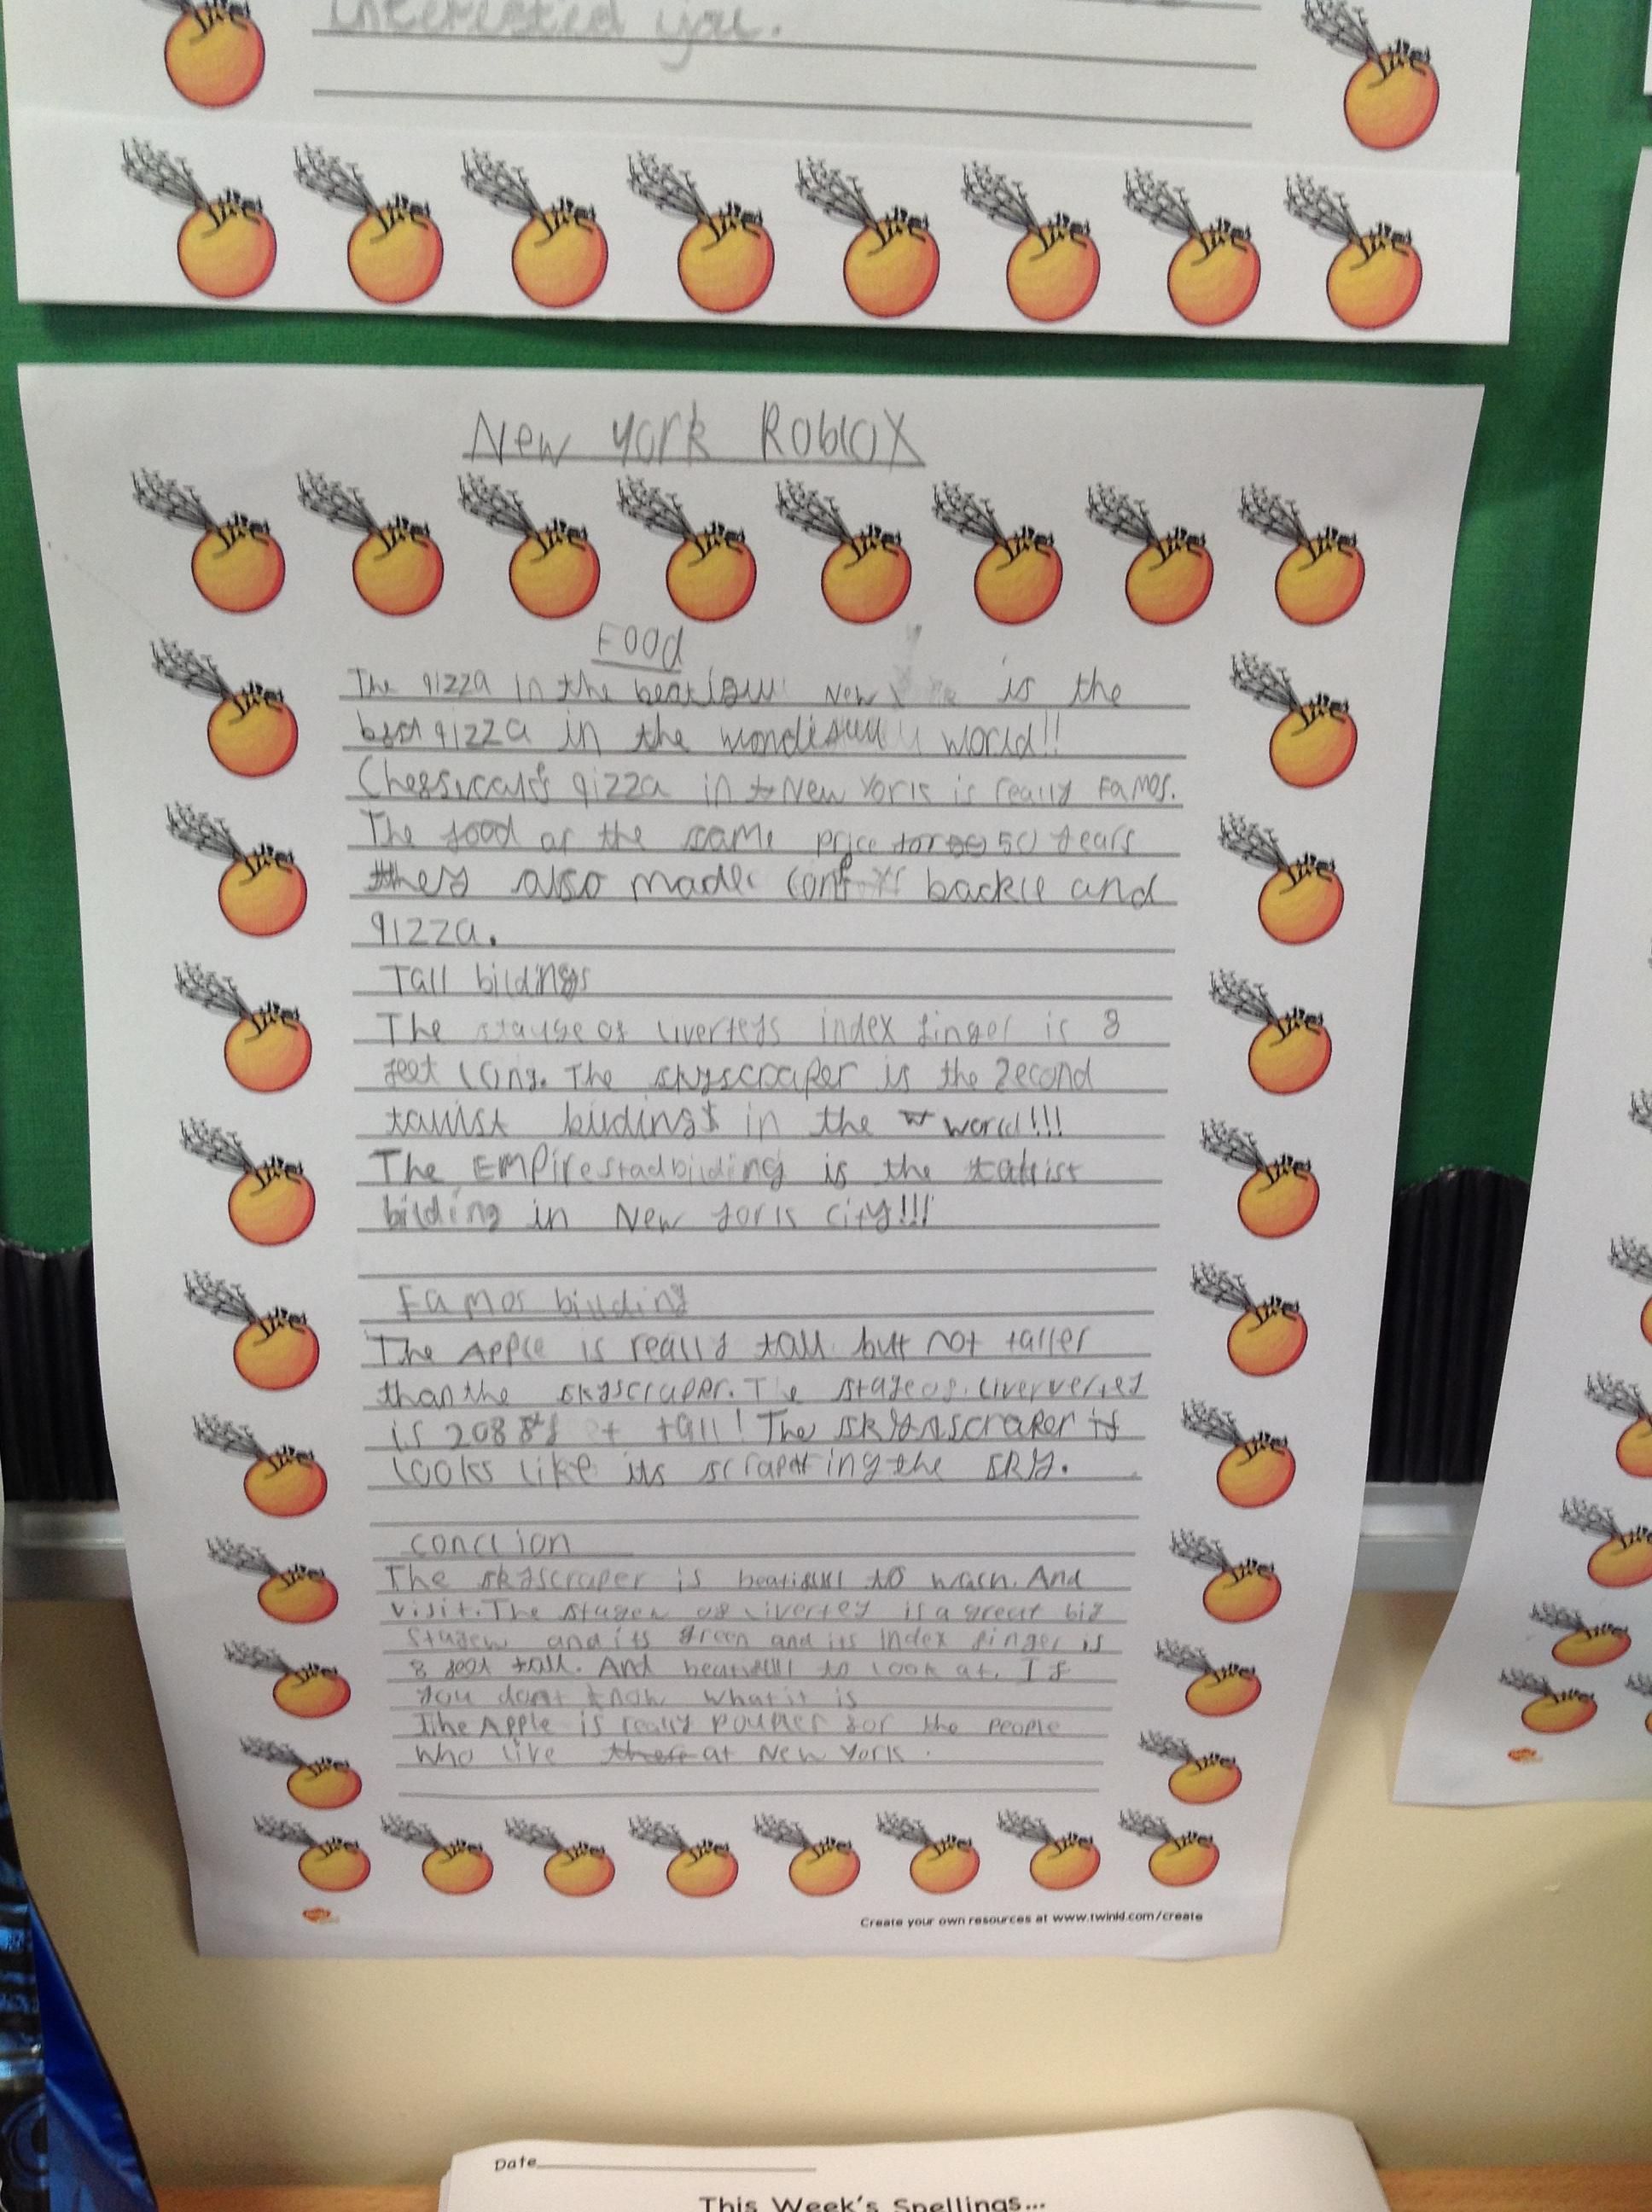 interested you.
New York Roblox
Food
The pizza in the New is the
best pizza in the world!!
pizza in New York is really Famos.
The food at the same price for 50 years
they also made backie and
pizza.
Tall bildings
The stayge of liverteys index finger is 8
feet long. The skyscraper is the second
tallist bildings in the world!!!
The Empirestadbilding is the tallist
bilding in New york city!!!
Famos bilding
The Apple is really tall but not taller
than the skyscraper. The of
is 208 tall! The skyscraper
looks like its scraping the sky.
conclion
The skyscraper is to wach. And
visit. The stayew of livertey is a great big
stayew and its green and its index finger is
8 feet tall. And to look at. If
you dont know what it is
The Apple is really for the people
who live at New York.
Create your own resources at www.twinkl.com/create
Date
This Week's Spellings...